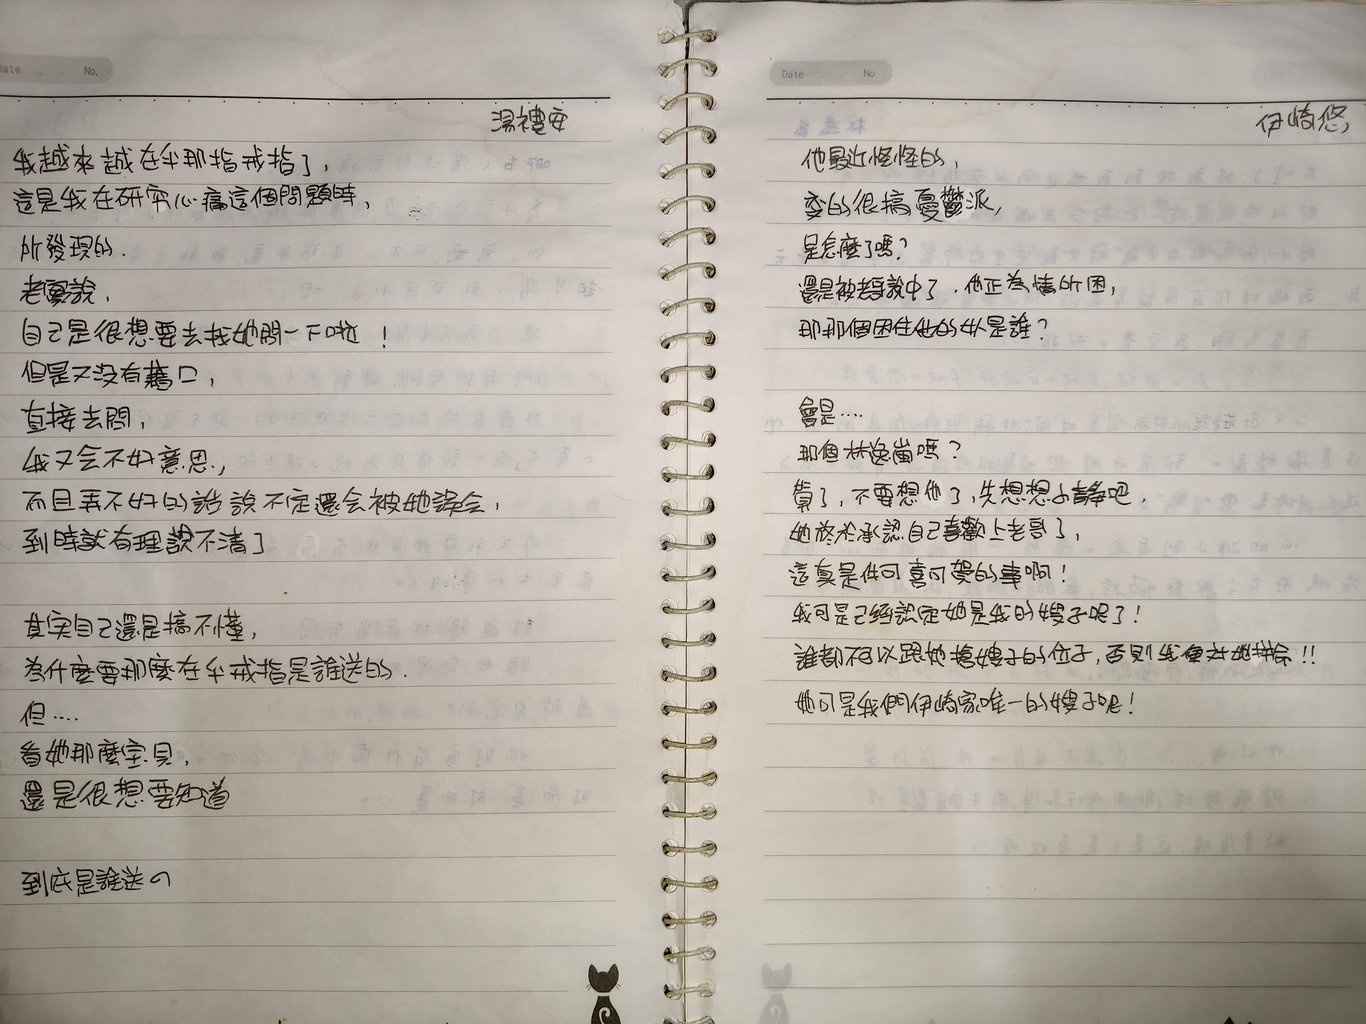 Date . . No.
湯禮安
我越來越在乎那指戒指了,
這是我在研究心痛這個問題時,
所發現的.
老實說,
自己是很想要去找她問一下啦!
但是又沒有藉口,
直接去問,
我又会不好意思,
而且弄不好的話說不定還会被她誤会,
到時就有理說不清了
其实自己還是搞不懂,
為什麼要那麼在乎戒指是誰送的.
但....
看她那麼宝貝,
還是很想要知道
到底是誰送の
Date . . No
伊崎悠
他最近怪怪的,
变的很搞憂鬱派,
是怎麼了嗎?
還是被老爹說中了.他正為情所困,
那那個困住他的女人是誰?
會是....
那個林逸嵐嗎?
算了,不要想他了,先想想小靜吧.
她終於承認自己喜歡上老哥了,
這真是件可喜可賀的事啊!
我可是已經認定她是我的嫂子呢了!
誰都不可以跟她搶嫂子的位子,否則我便对她拼命!!
她可是我們伊崎家唯一的嫂子呢!